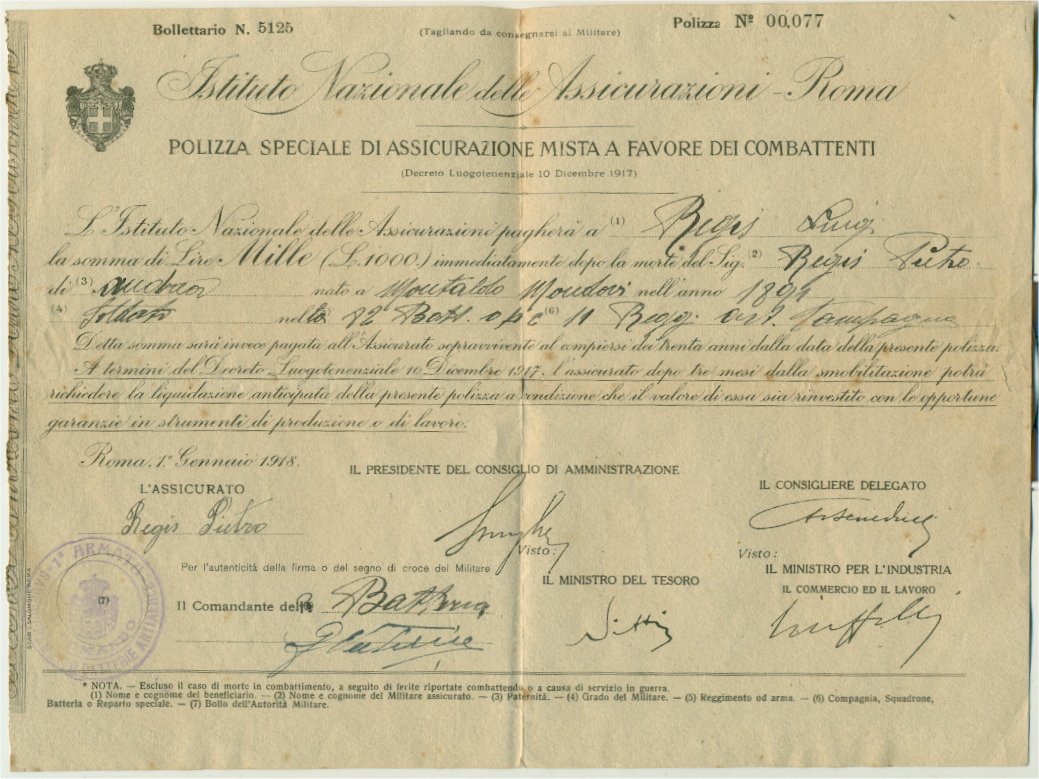 Bollettario N. 5125
(Tagliando da consegnarsi al Militare)
Polizza Nº 00,077
Istituto Nazionale delle Assicurazioni - Roma
POLIZZA SPECIALE DI ASSICURAZIONE MISTA A FAVORE DEI COMBATTENTI
(Decreto Luogotenenziale 10 Dicembre 1917)
L'Istituto Nazionale delle Assicurazioni pagherà a (1) Regis Luigi
la somma di Lire Mille (L. 1000.) immediatamente dopo la morte del Sig. (2) Regis Pietro
di (3) nato a Montaldo Mondovi nell'anno 189
(4) Soldato nella 82ª Batt. (6) 11 Regg. Art. Campagna
Detta somma sarà invece pagata all'Assicurato sopravvivente al compiersi dei trenta anni dalla data della presente polizza.
A termini del Decreto Luogotenenziale 10 Dicembre 1917, l'assicurato dopo tre mesi dalla smobilitazione potrà
richiedere la liquidazione anticipata della presente polizza a condizione che il valore di essa sia rinvestito con le opportune
garanzie in strumenti di produzione o di lavoro.
Roma, 1º Gennaio 1918.
IL PRESIDENTE DEL CONSIGLIO DI AMMINISTRAZIONE
IL CONSIGLIERE DELEGATO
L'ASSICURATO
Regis Pietro
Visto:
Visto:
Per l'autenticità della firma o del segno di croce del Militare
IL MINISTRO DEL TESORO
IL MINISTRO PER L'INDUSTRIA
IL COMMERCIO ED IL LAVORO
(7)
Il Comandante della Batteria
Nitti
1ª ARMATA
COMANDO
BATTERIE
* NOTA. — Escluso il caso di morte in combattimento, a seguito di ferite riportate combattendo o a causa di servizio in guerra.
(1) Nome e cognome del beneficiario. — (2) Nome e cognome del Militare assicurato. — (3) Paternità. — (4) Grado del Militare. — (5) Reggimento od arma. — (6) Compagnia, Squadrone,
Batteria o Reparto speciale. — (7) Bollo dell'Autorità Militare.